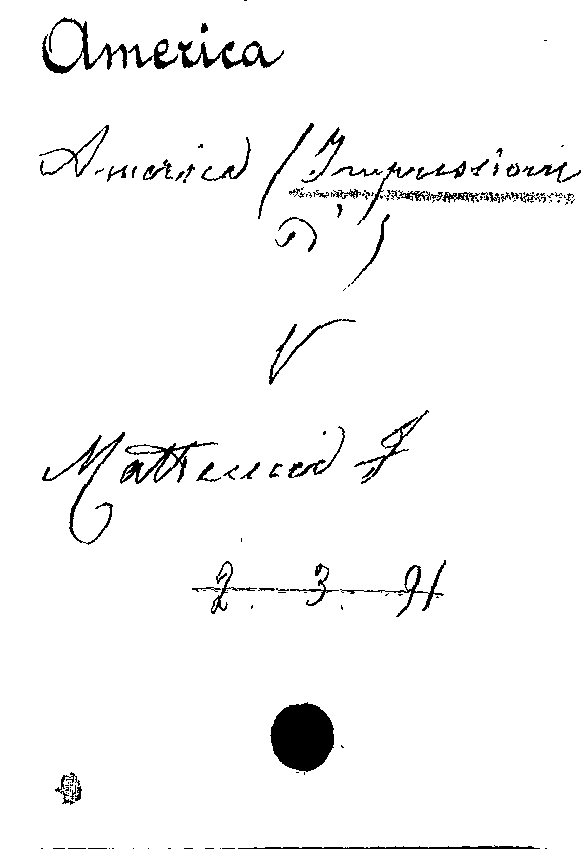 America
America (Impressioni
D')
V
Matteucci F
2. 3. 91